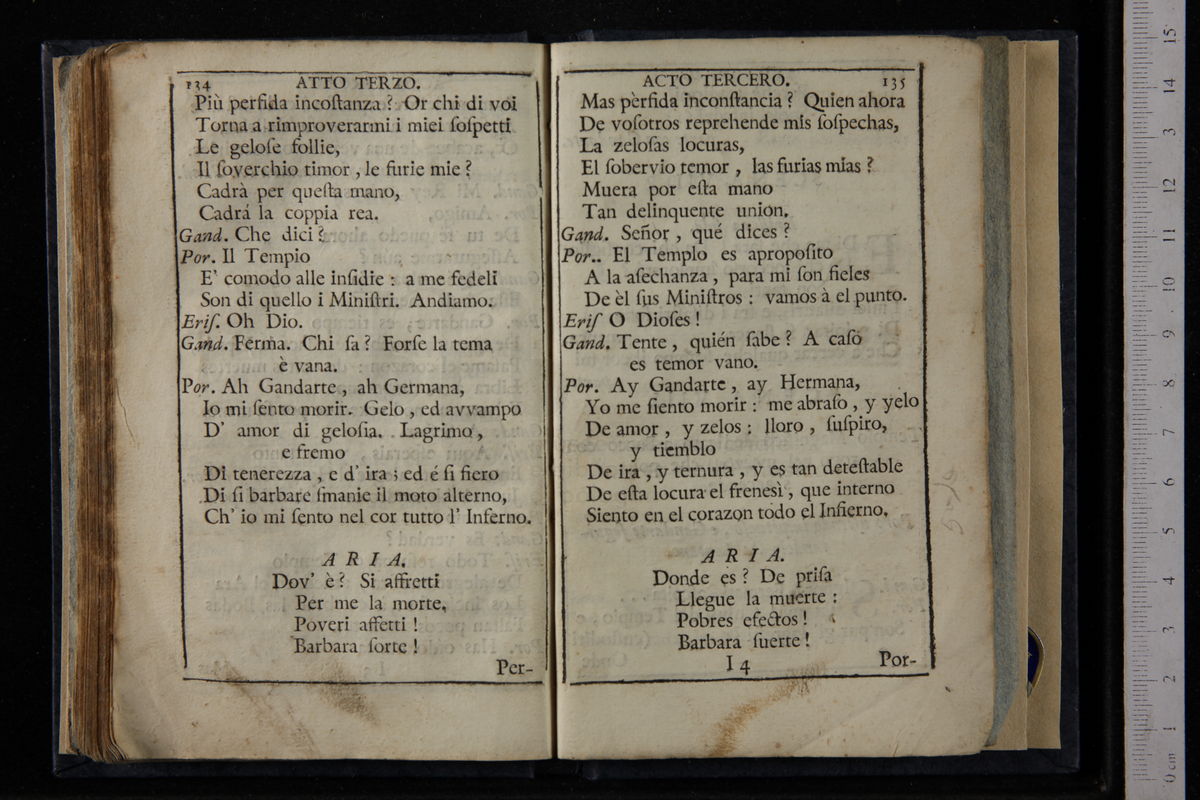 134 ATTO TERZO.
Più perfida incoſtanza? Or chi di voi
Torna a rimproverarmi i miei ſoſpetti
Le geloſe follie,
Il ſoverchio timor, le furie mie?
Cadrà per queſta mano,
Cadrá la coppia rea.
Gand. Che dici?
Por. Il Tempio
E' comodo alle inſidie: a me fedeli
Son di quello i Miniſtri. Andiamo.
Eriſ. Oh Dio.
Gand. Ferma. Chi ſa? Forſe la tema
è vana.
Por. Ah Gandarte, ah Germana,
Io mi ſento morir. Gelo, ed avvampo
D' amor di geloſia. Lagrimo,
e fremo
Di tenerezza, e d' ira; ed é ſi fiero
Di ſi barbare ſmanie il moto alterno,
Ch' io mi ſento nel cor tutto l' Inferno.
ARIA.
Dov' è? Si affretti
Per me la morte,
Poveri affetti!
Barbara ſorte!
Per-
ACTO TERCERO. 135
Mas pèrfida inconſtancia? Quien ahora
De voſotros reprehende mis ſoſpechas,
La zeloſas locuras,
El ſobervio temor, las furias mias?
Muera por eſta mano
Tan delinquente unión.
Gand. Señor, qué dices?
Por.. El Templo es apropoſito
A la aſechanza, para mi ſon fieles
De èl ſus Miniſtros: vamos à el punto.
Eriſ O Dioſes!
Gand. Tente, quién ſabe? A caſo
es temor vano.
Por. Ay Gandarte, ay Hermana,
Yo me ſiento morir: me abraſo, y yelo
De amor, y zelos: lloro, ſuſpiro,
y tiemblo
De ira, y ternura, y es tan deteſtable
De eſta locura el freneſì, que interno
Siento en el corazon todo el Infierno.
ARIA.
Donde es? De priſa
Llegue la muerte:
Pobres efectos!
Barbara ſuerte!
I 4 Por-
0 cm 1 2 3 4 5 6 7 8 9 10 11 12 3 14 15